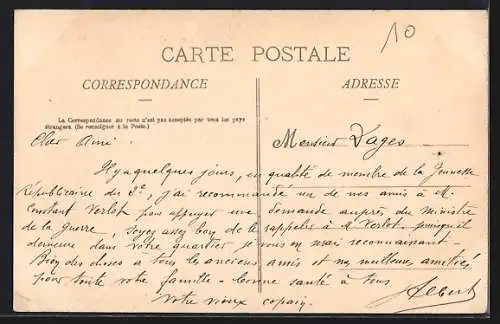 10
CARTE POSTALE
CORRESPONDANCE
ADRESSE
La Correspondance au recto n'est pas acceptée par tous les pays
étrangers. (Se renseigner à la Poste.)
Cher Ami.
Monsieur Vages
Il y a quelques jours, en qualité de membre de la Jeunesse
Républicaine du 2e, j'ai recommandé un de nos amis à M.
Constant Verlot pour appuyer une demande auprès du ministre
de la guerre, soyez assez bon de le rappeler à M. Verlot, puisqu'il
demeure dans votre quartier je vous en serai reconnaissant.
Bien des choses à tous les anciens amis et mes meilleures amitiés
pour toute votre famille - bonne santé à tous
Votre vieux copain
Albert